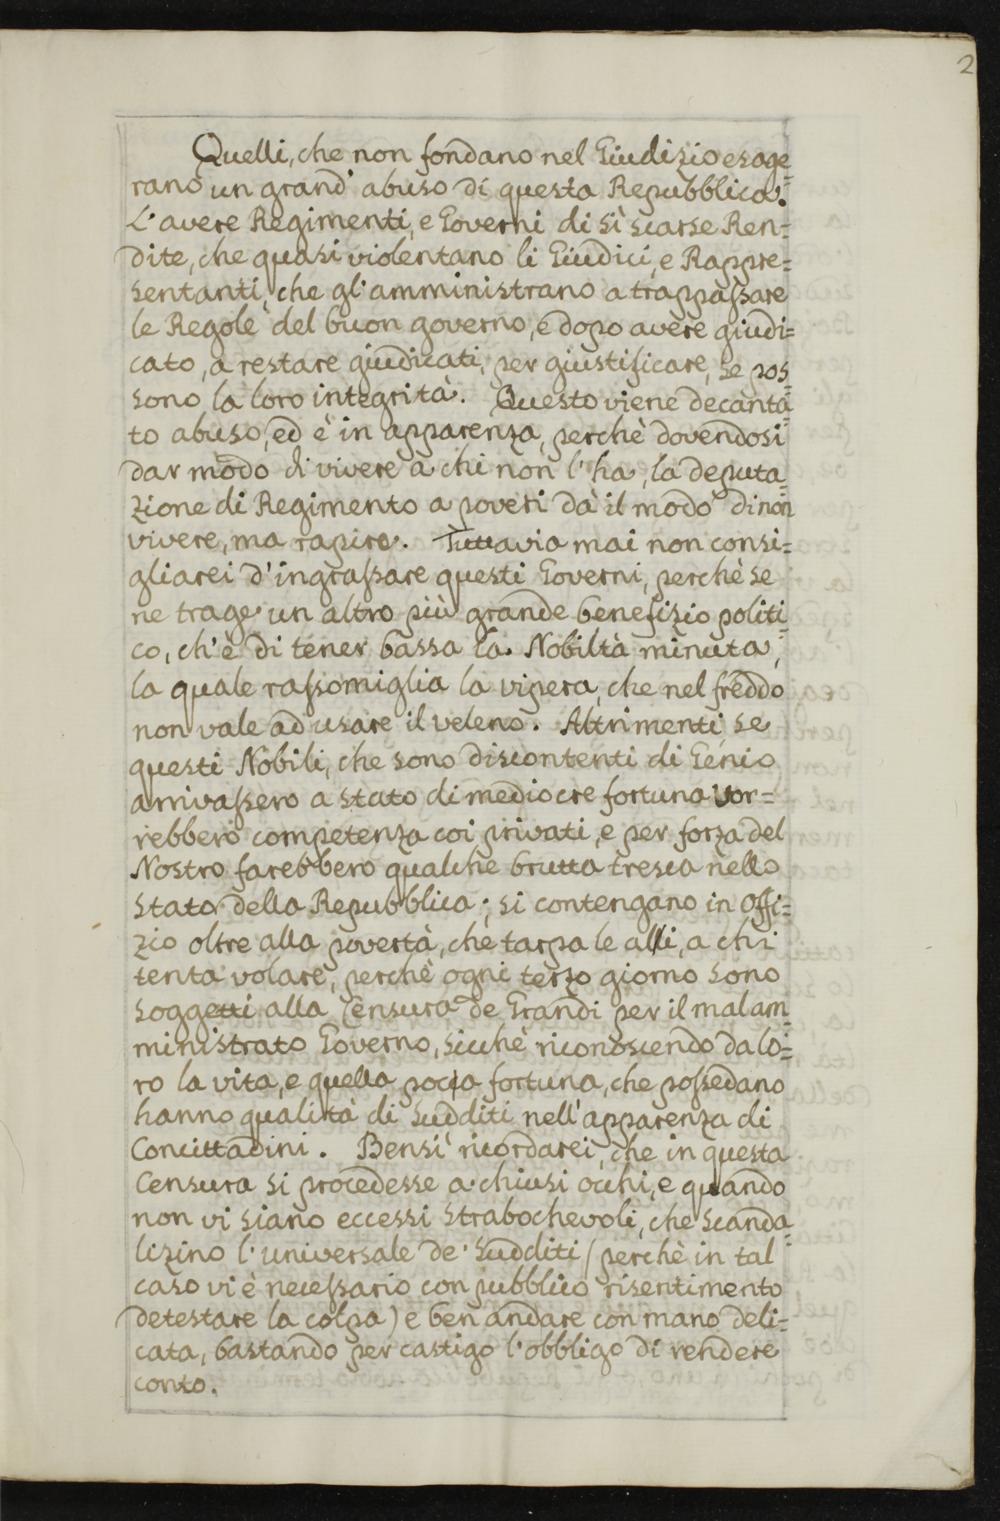 2
Quelli, che non fondano nel Giudizio esage=
rano un grand' abuso di questa Repubblica:
L'avere Regimenti, e Governi di sì scarse Ren=
dite, che quasi violentano li Giudici, e Rappre=
sentanti, che gl'amministrano a trappassare
le Regole del buon governo, e dopo avere giudi=
cato, a restare giudicati, per giustificare, se pos=
sono la loro integrità. Questo viene decanta=
to abuso, ed è in apparenza, perchè dovendosi
dar modo di vivere a chi non l'ha, la deputa=
zione di Regimento a poveri dà il modo di non
vivere, ma rapire. Tuttavia mai non consi=
gliarei d'ingrassare questi Governi, perchè se
ne trage un altro più grande benefizio politi=
co, ch'è di tener bassa la Nobiltà minuta,
la quale rassomiglia la vipera, che nel freddo
non vale ad usare il veleno. Altrimenti se
questi Nobili, che sono discontenti di Genio
arrivassero a stato di mediocre fortuna vor=
rebbero competenza coi privati, e per forza del
Nostro farebbero qualche brutta tresca nello
Stato della Repubblica; si contengano in offi=
zio oltre alla povertà, che tarpa le alli, a chi
tenta volare, perchè ogni terzo giorno sono
soggetti alla Censura de Grandi per il malam=
ministrato Governo, sicchè riconoscendo da lo=
ro la vita, e quella poca fortuna, che possedano
hanno qualità di Sudditi nell'apparenza di
Concittadini. Bensì ricordarei, che in questa
Censura si procedesse a chiusi occhi, e quando
non vi siano eccessi strabochevoli, che scanda=
lizino l'universale de' Sudditi (perchè in tal
caso vi è necessario con pubblico risentimento
detestare la colpa) e ben andare con mano deli=
cata, bastando per castigo l'obbligo di rendere
conto.